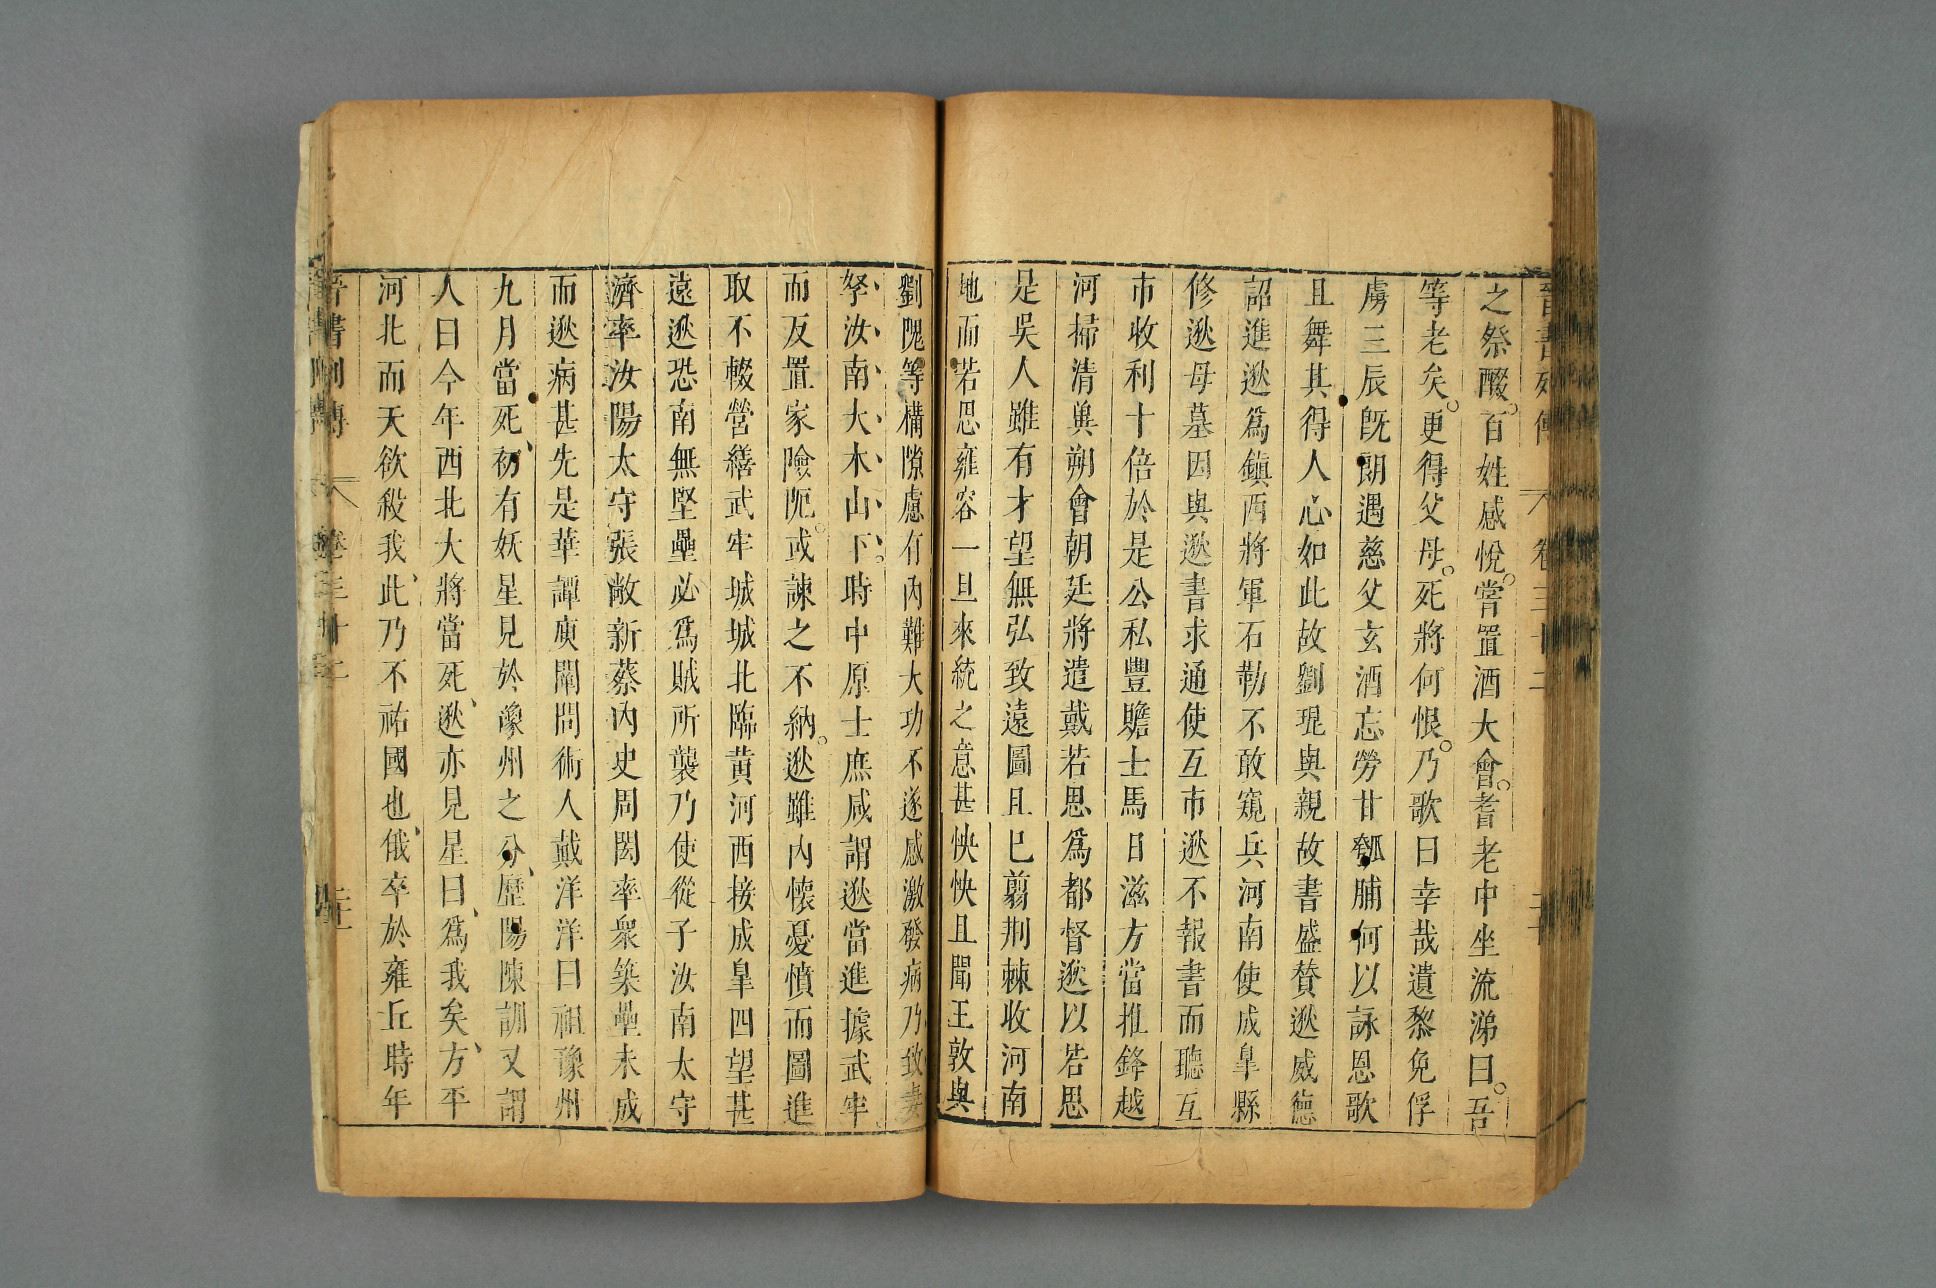 晉書列傳 卷三十二
之祭醊。百姓感悅。嘗置酒大會。耆老中坐流涕曰。吾
等老矣。更得父母。死將何恨。乃歌曰幸哉遺黎免俘
虜三辰既朗遇慈父玄酒忘勞甘瓠脯何以詠恩歌
且舞其得人心如此故劉琨與親故書盛贊逖威德
詔進逖爲鎮西將軍石勒不敢窺兵河南使成皐縣
修逖母墓因與逖書求通使互市逖不報書而聽互
市收利十倍於是公私豐贍士馬日滋方當推鋒越
河掃清冀朔會朝廷將遣戴若思爲都督逖以若思
是吳人雖有才望無弘致遠圖且已翦荆棘收河南
地而若思雍容一旦來統之意甚怏怏且聞王敦與
劉隗等構隙慮有內難大功不遂感激發病乃致妻
孥汝南大木山下。時中原士庶咸謂逖當進據武牢
而反置家險阨。或諫之不納。逖雖內懷憂憤而圖進
取不輟營繕武牢城城北臨黃河西接成皐四望甚
遠逖恐南無堅壘必爲賊所襲乃使從子汝南太守
濟率汝陽太守張敞新蔡內史周閎率衆築壘未成
而逖病甚先是華譚庾闡問術人戴洋洋曰祖豫州
九月當死、初有妖星見於豫州之分、歷陽陳訓又謂
人曰今年西北大將當死、逖亦見星曰、爲我矣、方平
河北而天欲殺我、此乃不祐國也、俄卒於雍丘時年
晉書列傳 卷三十二